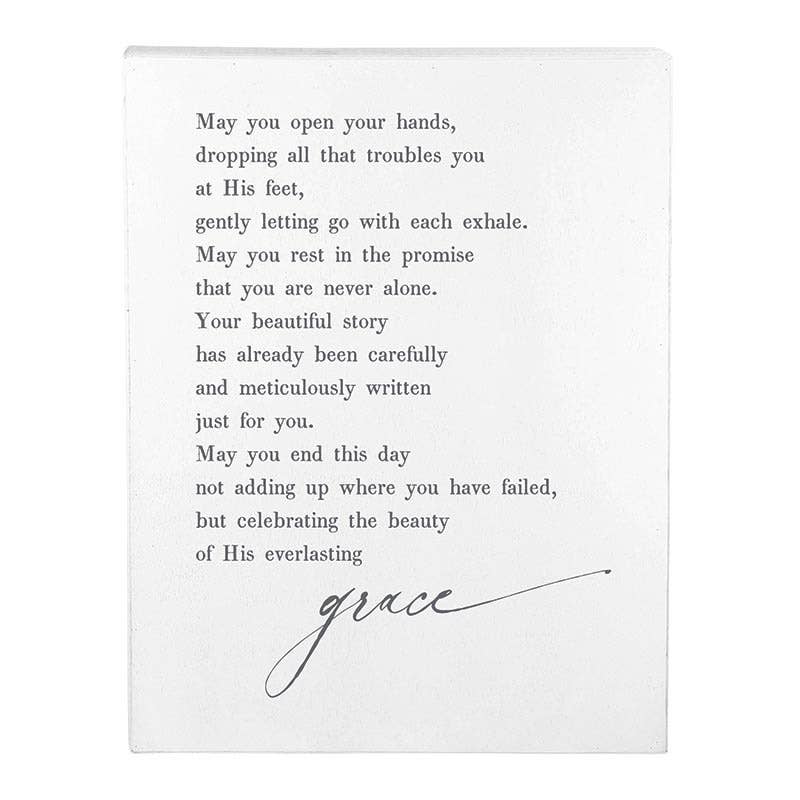 May you open your hands,
dropping all that troubles you
at His feet,
gently letting go with each exhale.
May you rest in the promise
that you are never alone.
Your beautiful story
has already been carefully
and meticulously written
just for you.
May you end this day
not adding up where you have failed,
but celebrating the beauty
of His everlasting
grace